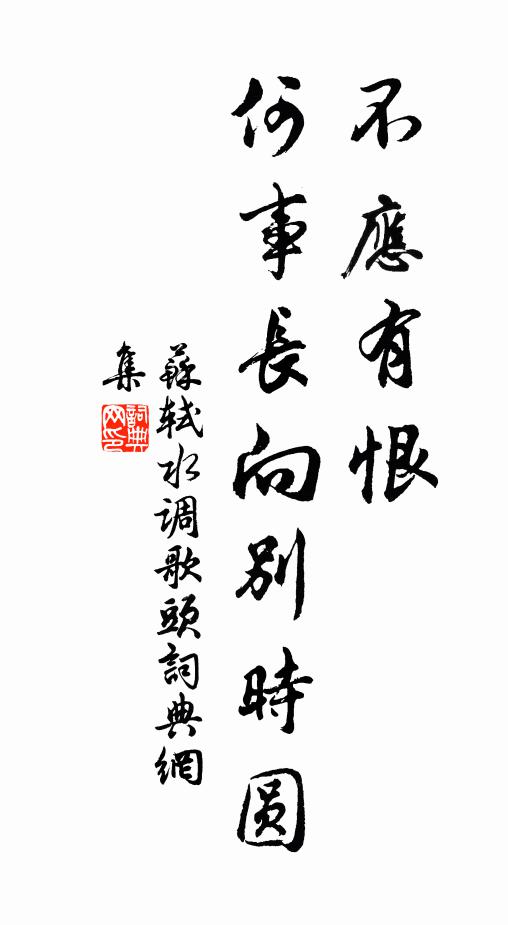 不應有恨
何事長向別時圆
蘇轼水调歌頭詞典網
集
詞典网印